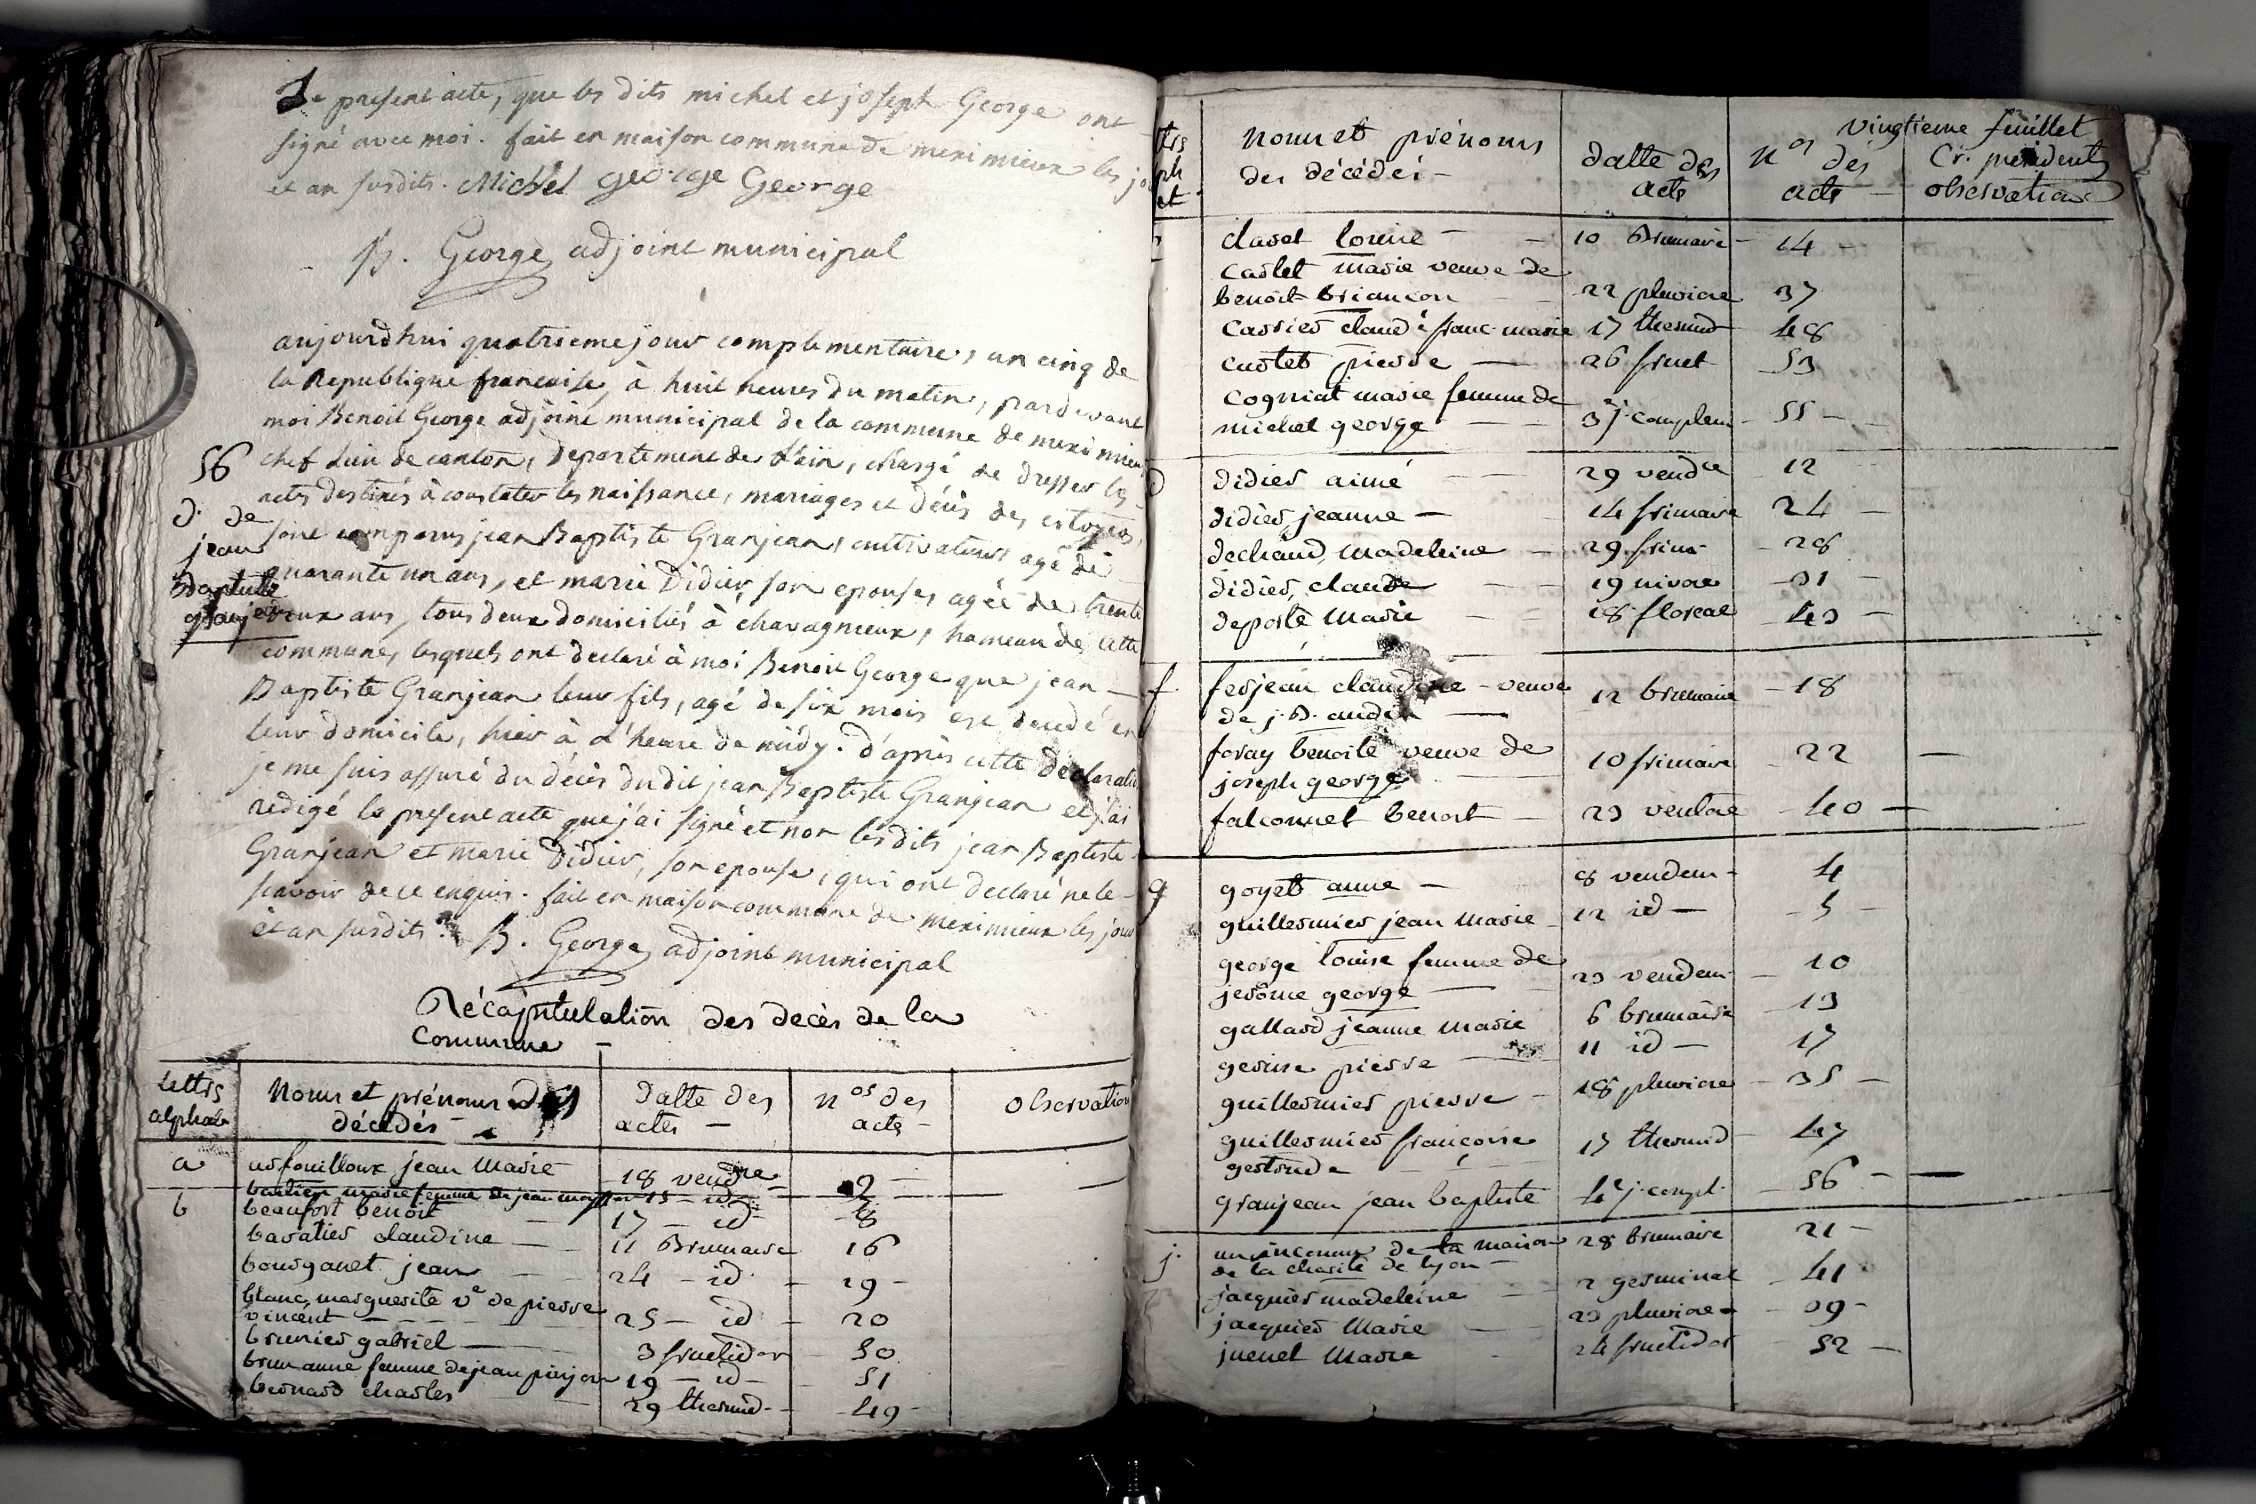 Le present acte, que les dits michel et joseph George ont
signé avec moi. fait en maison commune de meximieux les jour
et an susdits. Michel george George
B. George adjoint municipal
aujourdhui quatrieme jour complementaire, an cinq de
la Republique francaise, à huit heures du matin, pardevant
moi Benoit George adjoint municipal de la commune de meximieux
chef lieu de canton, departement de L'ain, chargé de dresser les
actes destinés à constater les naissance, mariages et décès des citoyens,
sont comparus jean Baptiste Granjean, cultivateur agé de
quarante un ans, et marie Didier son epouse, agée de trente
deux ans, tous deux domiciliés à chavagnieux, hameau de cette
commune, lesquels ont declaré à moi Benoit George que jean
Baptiste Granjean leur fils, agé de six mois est decedé en
leur domicile, hier à L'heure de midy. d'après cette declaration
je me suis assuré du décès dudit jean Baptiste Granjean et j'ai
redigé le present acte que j'ai signé et non lesdits jean Baptiste
Granjean et marie Didier, son epouse, qui ont declaré ne le
scavoir de ce enquis. fait en maison commune de meximieux les jour
et an susdits. B. George adjoint municipal
56
d. de
jean
Baptiste
granjean
Récapitulation des decès de la
Commune
Lettrs alphab Noms et prénoms des décédés Datte des actes nos des acte observation
a usfouilloux jean Marie 18 vendre 9
barlier marie femme de jean 15 id
b beaufort benoit 17 id 8
baratier claudine 11 Brumaire 16
bourganet jean 24 id 19
blanc marguerite ve de pierre
vincent 25 id 20
brunier gabriel 3 fructidor 50
brun anne femme de jean pinjon 19 id 51
bernard charles 29 thermid. 49
vingtieme feuillet
Cr. président
noms et prénoms des décédés datte des acts nos des acte observations
clavel louise 10 Brumaire 14
carlet marie veuve de
benoit briancon 22 pluviose 37
carrier claude franc. marie 17 thermid 48
curtet pierre 26 fruct 53
cogniat marie femme de
michel george 3e j. complem 55
d didier aimé 29 vendre 12
didier jeanne 14 frimaire 24
dechaud Madeleine 29 frim. 28
didier, claude 19 nivose 31
deporte Marie 18 floreal 43
f. ferjean claudine veuve
de j. B. audin 12 brumaire 18
foray benoite veuve de
joseph george 10 frimaire 22
falconnet benoit 23 ventose 40
g goyet anne 8 vendem 4
guillermier jean Marie 12 id 5
george louise femme de
jerôme george 23 vendem 10
gallard jeanne Marie 6 brumaire 13
gerine pierre 11 id 17
guillermier pierre 18 pluviose 35
guillermier françoise
gertrude 17 thermid 47
granjean jean baptiste 4e j. compl. 56
j. un inconnu de la maison
de la charité de lyon 28 brumaire 21
jacquier madeleine 2 germinal 41
jacquier Marie 23 pluviose 39
juenet Marie 24 fructidor 52